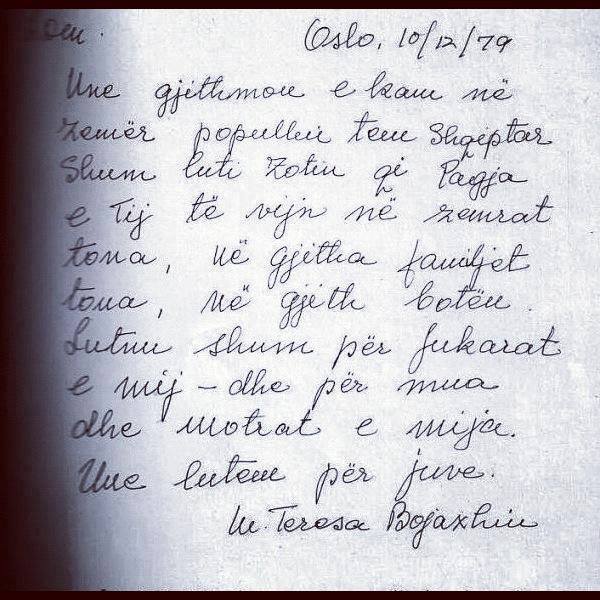 Oslo, 10/12/79
Une gjithmon e kam në
zemër popullin tem Shqiptar
Shum luti Zotin qi Paqja
e Tij të vijn në zemrat
tona, në gjitha familjet
tona, në gjith botën.
Lutnu shum për fukarat
e mij – dhe për mua
dhe motrat e mija.
Une lutem për juve.
M. Teresa Bojaxhiu